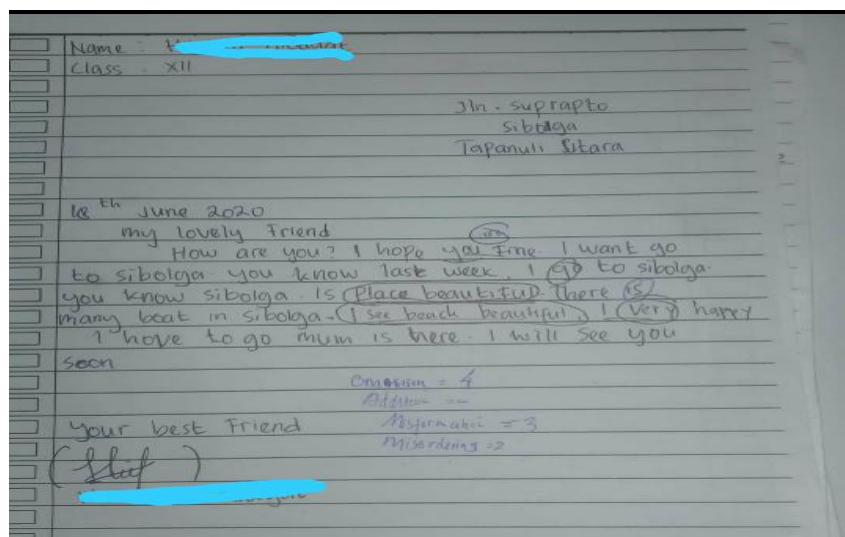 Name :
Class . XII
Jln . suprapto
sibolga
Tapanuli Utara
18 th June 2020
my lovely Friend
are
How are you? I hope you Fine. I want go
to sibolga. you know last week. I go to sibolga.
you know sibolga. is Place beautiFul. There is
many boat in sibolga. I see beach beautiful, I very happy
I have to go mum is here. I will see you
soon
Omission = 4
Addition =
your best Friend
Misformation = 3
Misordering = 2